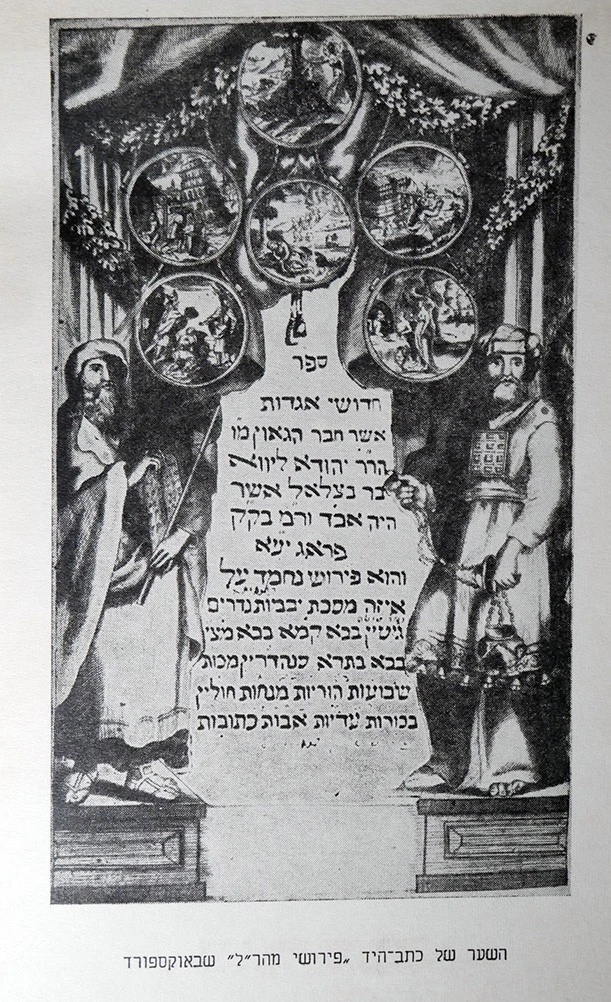 ספר
חדושי אגדות
אשר חבר הגאון מו
הרר יהודא ליווא
בר בצלאל אשר
היה אבד ורמ בקק
פראג יעא
והוא פירוש נחמד על
איזה מסכת יבמות נדרים
גיטין בבא קמא בבא מצי
בבא בתרא סנהדרין מכות
שבועות הוריות מנחות חולין
בכורות עדיות אבות כתובות
השער של כתב־היד „פירושי מהר״ל״ שבאוקספורד